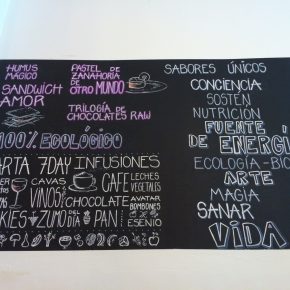 HUMUS
MÁGICO
SANDWICH
AMOR
PASTEL DE
ZANAHORIA
DE OTRO MUNDO
TRILOGÍA DE
CHOCOLATES RAW
100% ECOLÓGICO
ARTA 7DAY INFUSIONES
CAVAS
VINOS
CAFE
CHOCOLATE
LECHES
VEGETALES
AVATAR
BOMBONES
KIES ZUMO DEL DIA PAN ESENIO
SABORES ÚNICOS
CONCIENCIA
SOSTEN
NUTRICIÓN
FUENTE
DE ENERGÍ
ECOLOGÍA-BIO
ARTE
MAGIA
SANAR
VIDA